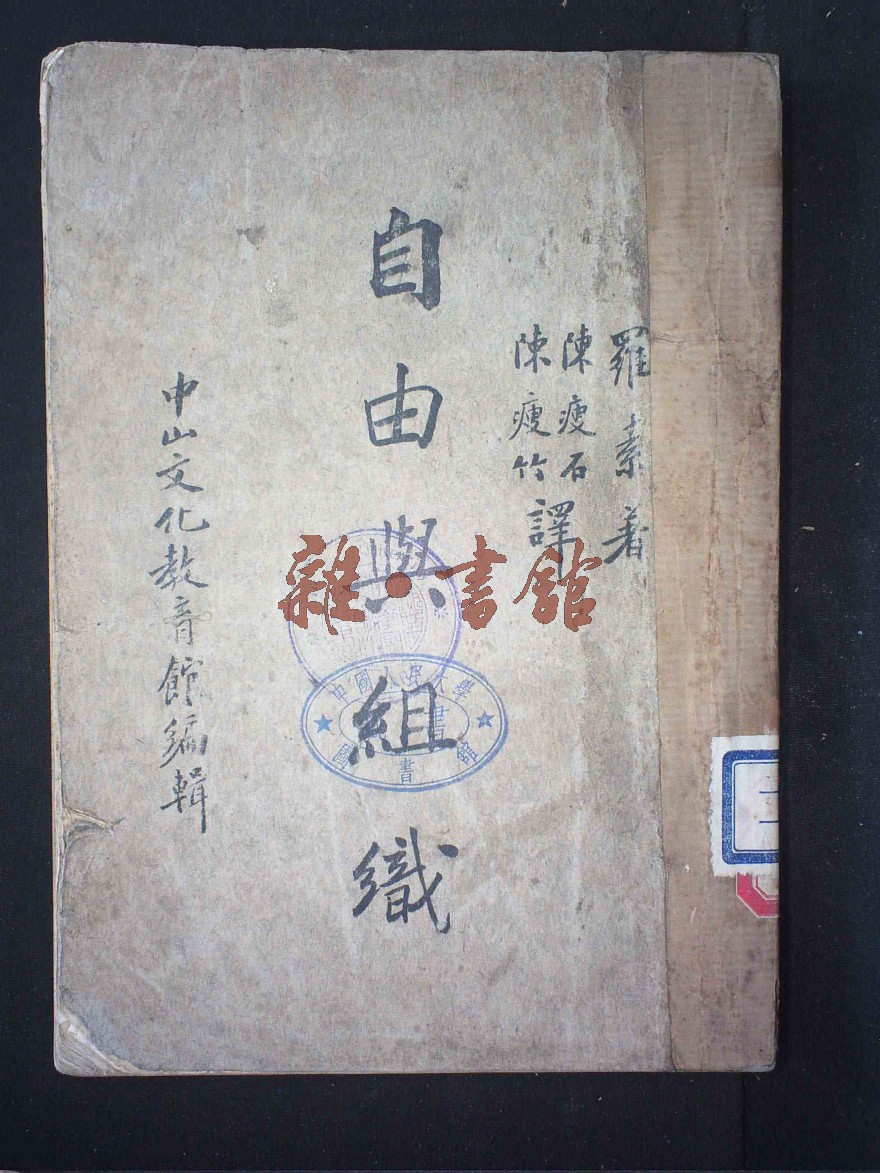 羅素著
陳瘦石
陳瘦竹
譯
自由與組織
中山文化教育館編輯
雜·書館
中國人民大學
圖書館